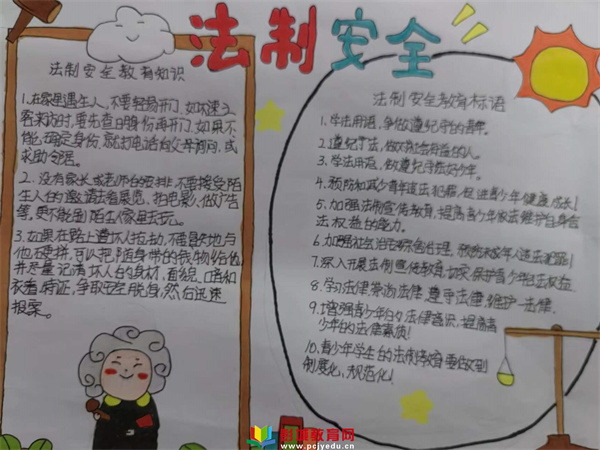 法制安全
法制安全教育知识
1.在家里遇生人,不要轻易开门,如快递
客来访时,要先查明身份再开门,如果不
能确定身份,就打电话向父母询问,或
求助邻居。
2.没有家长或老师的安排,不要接受陌
生人的邀请去看展览、拍电影、做广告
等,更不能到陌生人家里去玩。
3.如果在路上遭坏人拉劫,不要冒失地与
他死拼,可以把随身带的钱物给他
并尽量记清坏人的身材、面貌、口音和
衣着特征,争取安全脱身,然后迅速
报案。
法制安全教育标语
1.学法用法,争做遵纪守法的青年。
2.遵纪守法,做对社会有益的人。
3.学法用法,做遵纪守法好少年。
4.预防和减少青年违法犯罪,促进青少年健康成长!
5.加强法制宣传教育,提高青少年依法维护自身合
法权益的能力。
6.加强社会治安综合治理,预防未成年人违法犯罪!
7.深入开展法制宣传教育,保护青少年合法权益
8.学习法律,崇尚法律,遵守法律,维护法律。
9.增强青少年的法律意识,提高青
少年的法律素质!
10.青少年学生的法制教育要做到
制度化、规范化!
教育网
www.pcjyedu.cn